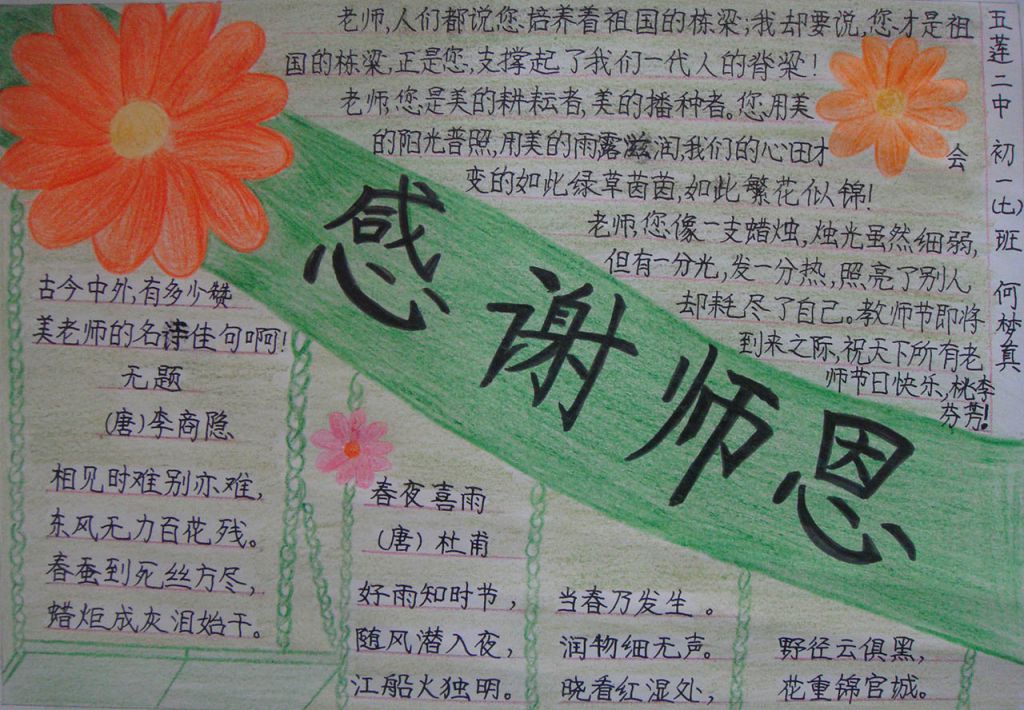 老师,人们都说您培养着祖国的栋梁;我却要说,您才是祖
国的栋梁,正是您,支撑起了我们一代人的脊梁!
老师,您是美的耕耘者,美的播种者。您用美
的阳光普照,用美的雨露滋润,我们的心田才会
变的如此绿草茵茵,如此繁花似锦!
老师,您像一支蜡烛,烛光虽然细弱,
但有一分光,发一分热,照亮了别人
却耗尽了自己。教师节即将
到来之际,祝天下所有老
师节日快乐,桃李
芬芳!
五莲二中 初一(七)班 何梦真
感谢师恩
古今中外,有多少赞
美老师的名诗佳句啊!
无题
(唐)李商隐
相见时难别亦难,
东风无力百花残。
春蚕到死丝方尽,
蜡炬成灰泪始干。
春夜喜雨
(唐)杜甫
好雨知时节,
当春乃发生。
随风潜入夜,
润物细无声。
野径云俱黑,
江船火独明。
晓看红湿处,
花重锦官城。